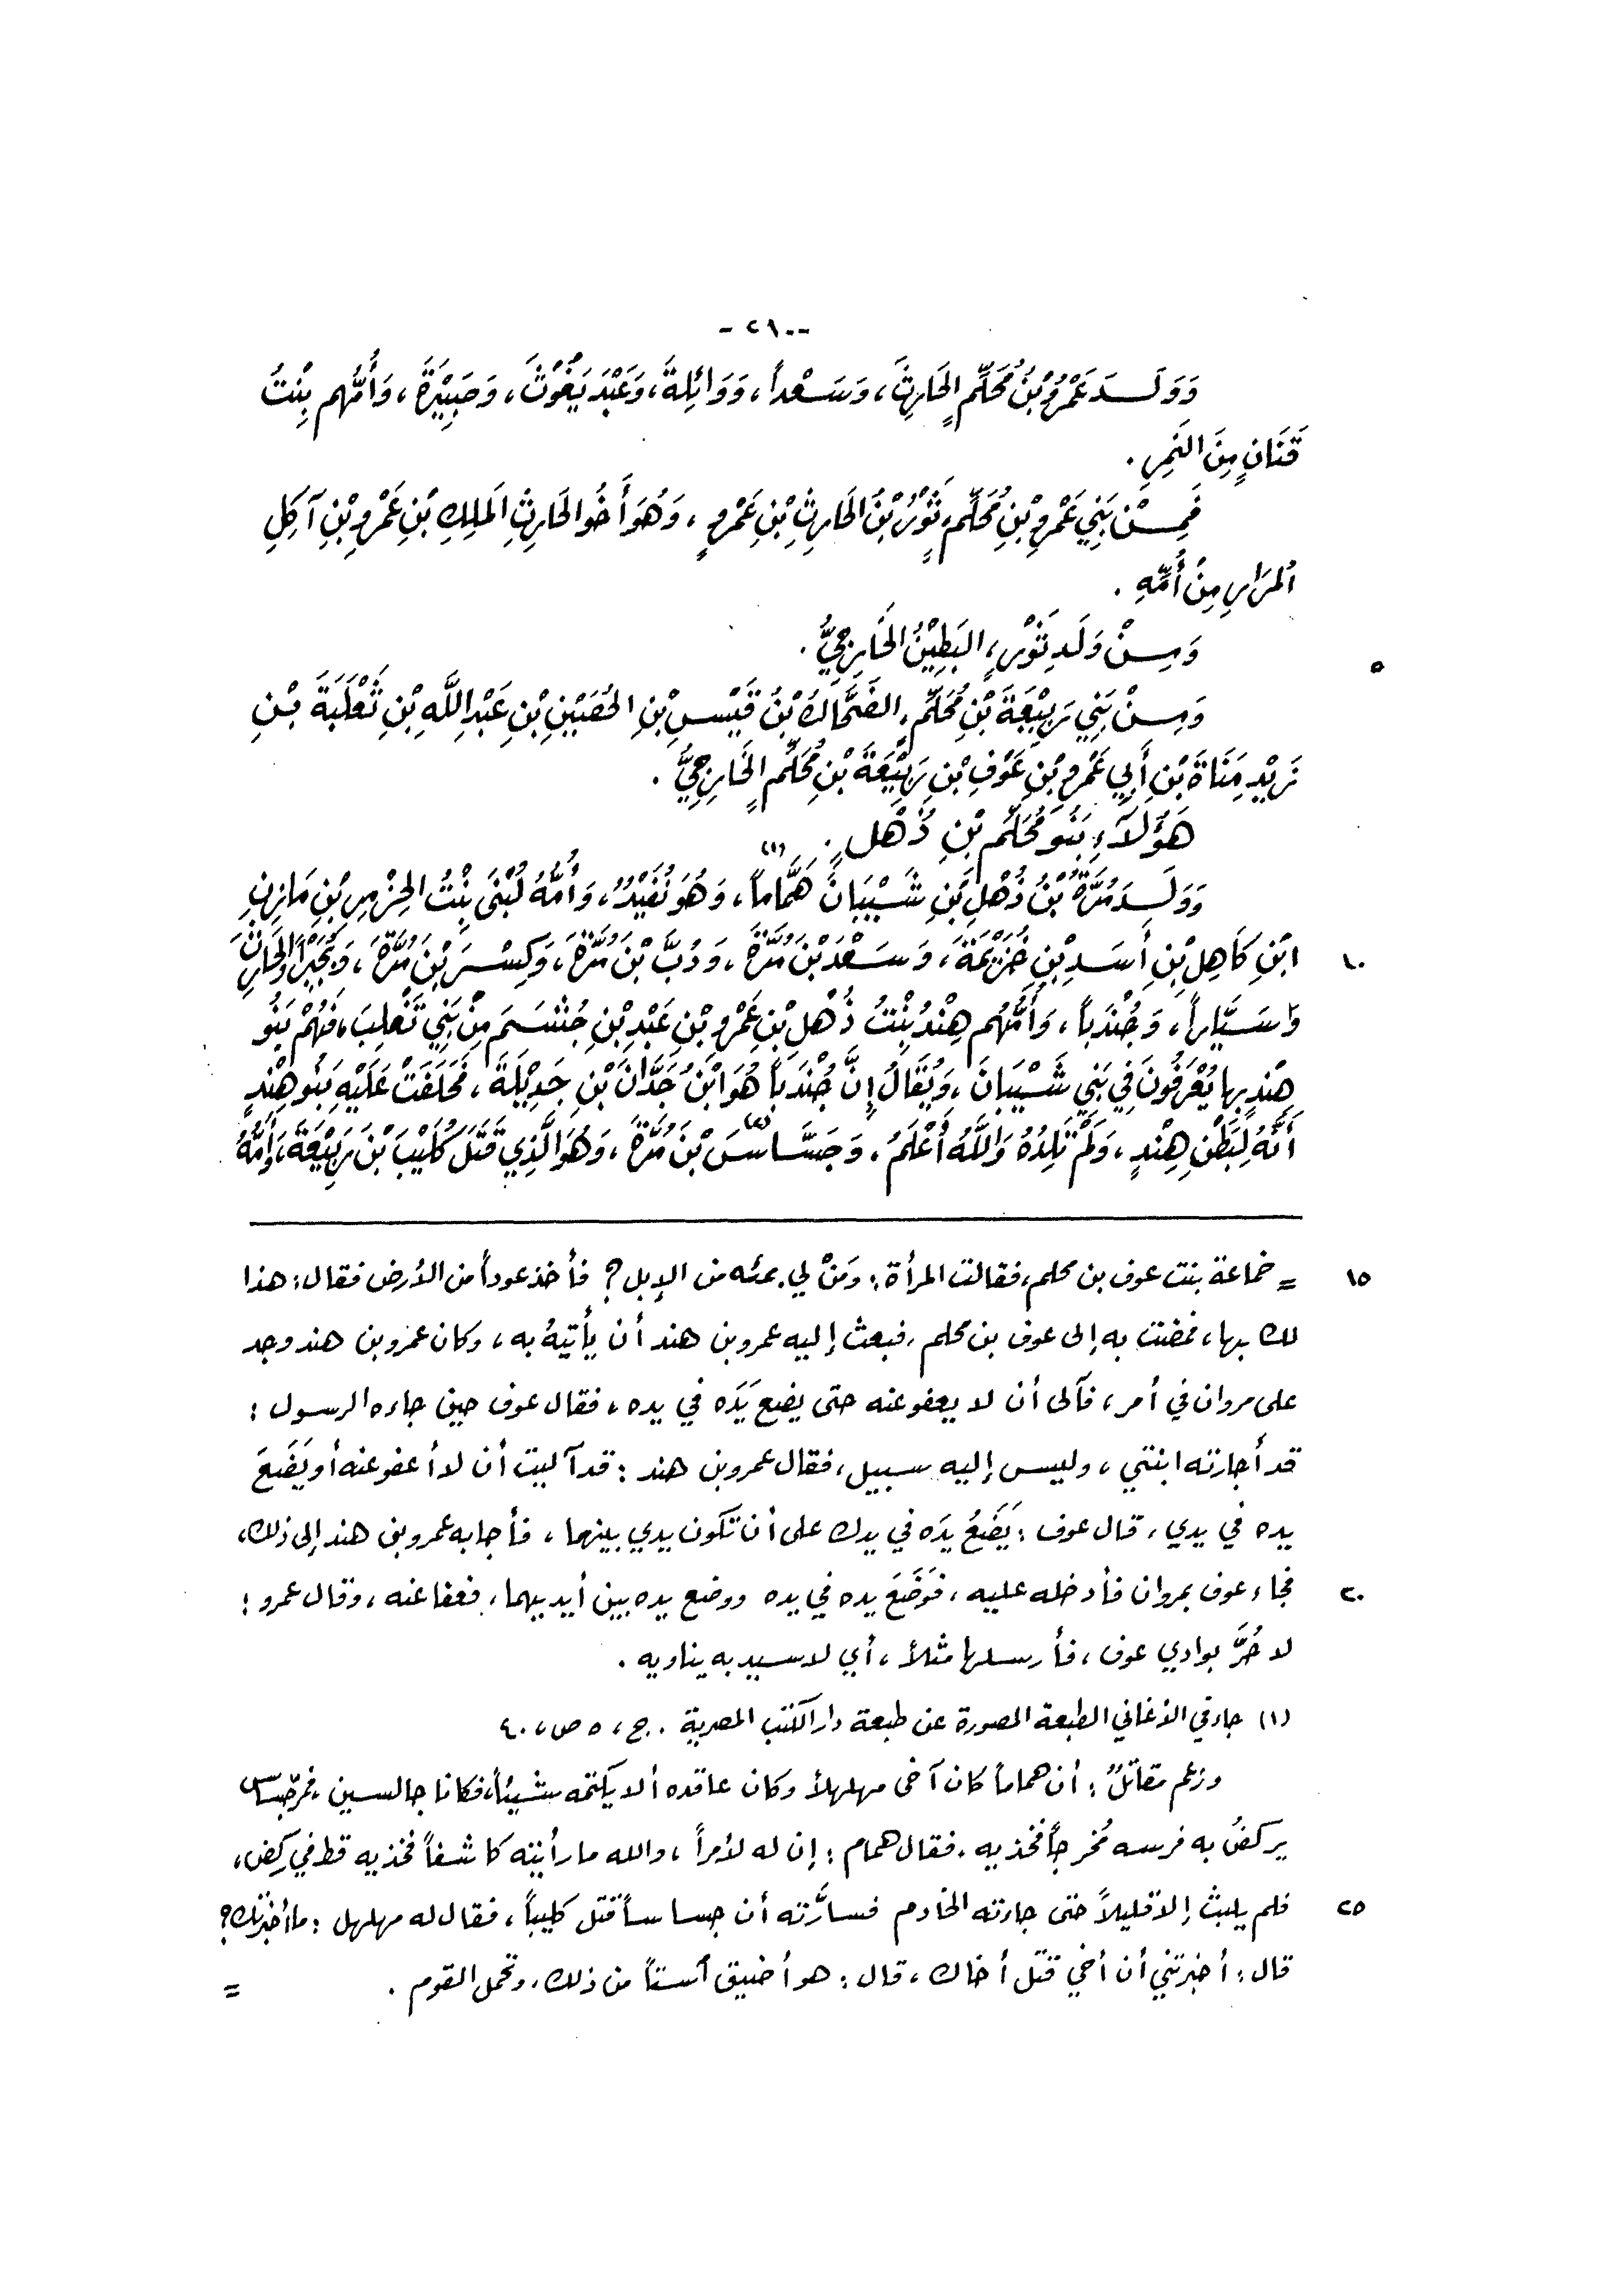 - ٢١٠ -
وَوَلَـدَ عَمْرُو بْنُ مُحَلِّمٍ الحَارِثَ، وَسَعْداً، وَوَائِلَةَ، وَعَبْدَ يَغُوْثَ، وَحَبِيْبَةَ، وَأُمُّهم بِنْتُ
قَنَانٍ مِنَ النَّمِرِ.
فَمِـنْ بَنِي عَمْرِو بْنِ مُحَلِّمٍ، ثَوْرُ بْنُ الحَارِثِ بْنِ عَمْرٍو، وَهُوَ أَخُو الحَارِثِ المَلِكِ بْنِ عَمْرِو بْنِ آكِلِ
المُرَارِ مِنْ أُمِّهِ.
٥ وَمِـنْ وَلَدِ ثَوْرٍ، البَطِيْنُ الخَارِجِيُّ.
وَمِـنْ بَنِي رَبِيْعَةَ بْنِ مُحَلِّمٍ، الضَّحَّاكُ بْنُ قَيْسِ بْنِ الحُصَيْنِ بْنِ عَبْدِ اللَّهِ بْنِ ثَعْلَبَةَ بْـنِ
زَيْدِ مَنَاةَ بْنِ أَبِي عَمْرِو بْنِ عَوْفِ بْنِ رَبِيْعَةَ بْنِ مُحَلِّمٍ الخَارِجِيُّ.
هَؤُلَاءِ بَنُو مُحَلِّمِ بْنِ ذُهْلٍ.
وَوَلَـدَ مُرَّةُ بْنُ ذُهْلِ بْنِ شَيْبَانَ هَمَّاماً(١)، وَهُوَ نُفَيْدٌ، وَأُمُّهُ لُبْنَى بِنْتُ الحِزْمِرِ بْنِ مَازِنِ
١٠ ابْنِ كَاهِلِ بْنِ أَسَدِ بْنِ خُزَيْمَةَ، وَسَعْدَ بْنَ مُرَّةَ، وَدُبَّ بْنَ مُرَّةَ، وَكِسْرَ بْنَ مُرَّةَ، وَبُجَيْراً وَالحَارِثَ
وَسَيَّاراً، وَجُنْدَباً، وَأُمُّهُم هِنْدُ بِنْتُ ذُهْلِ بْنِ عَمْرِو بْنِ عَبْدِ بْنِ جُشَـمَ مِنْ بَنِي تَغْلِبَ، فَهُمْ بَنُو
هِنْدٍ بِها يُعْرَفُونَ فِي بَنِي شَيْبَانَ، وَيُقَالُ إِنَّ جُنْدَباً هُوَ ابْنُ جَدَّانَ بْنِ جَدِيْلَةَ، فَحَلَفَتْ عَلَيْهِ بَنُو هِنْدٍ
أَنَّهُ لِبَطْنِ هِنْدٍ، وَلَمْ تَلِدْهُ وَاللَّهُ أَعْلَمُ، وَجَسَّاسَ(٢) بْنَ مُرَّةَ، وَهُوَ الَّذِي قَتَلَ كُلَيْبَ بْنَ رَبِيْعَةَ، وَأُمُّهُ
١٥ = خماعة بنت عوف بن محلم، فقالت المرأة: وَمَنْ لي بمئه من الإبل؟ فأخذ عوداً من الأرض فقال: هذا
لك بها، فمضت به إلى عوف بن محلم، فبعث إليه عمرو بن هند أن يأتيهُ به، وكان عمرو بن هند وجد
على مروان في أمر، فآلى أن لا يعفو عنه حتى يضع يَدَه في يده، فقال عوف حين جاءه الرسول:
قد أجارته ابنتي، وليس إليه سبيل، فقال عمرو بن هند: قد آليت أن لا أعفو عنه أو يَضَعَ
يده في يدي، قال عوف: يَضَعُ يدَه في يدك على أن تكون يدي بينهما، فأجابه عمرو بن هند إلى ذلك،
٢٠ فجاء عوف بمروان فأدخله عليه، فَوَضَعَ يده في يده ووضع يده بين أيديهما، فعفا عنه، وقال عمرو:
لا حُرَّ بوادي عوف، فأرسلها مثلاً، أي لا سيد به يناويه.
(١) جاء في الأغاني الطبعة المصورة عن طبعة دار الكتب المصرية. ج، ٥ ص، ٤٠
وزعم مقاتلٌ: أن هماماً كان آخى مهلهلاً وكان عاقده ألا يكتمه شيئاً، فكانا جالسين، فمرّ جسّاس
يركضُ به فرسه مُخرجاً فخذيه، فقال همام: إن له لأمراً، والله ما رأيته كاشفاً فخذيه قط في ركض،
٢٥ فلم يلبث إلا قليلاً حتى جاءته الخادم فسارَّته أن جساساً قتل كليباً، فقال له مهلهل: ما أخبرتك؟
قال: أخبرتني أن أخي قتل أخاك، قال: هو أضيق أستاً من ذلك، وتحمل القوم. =